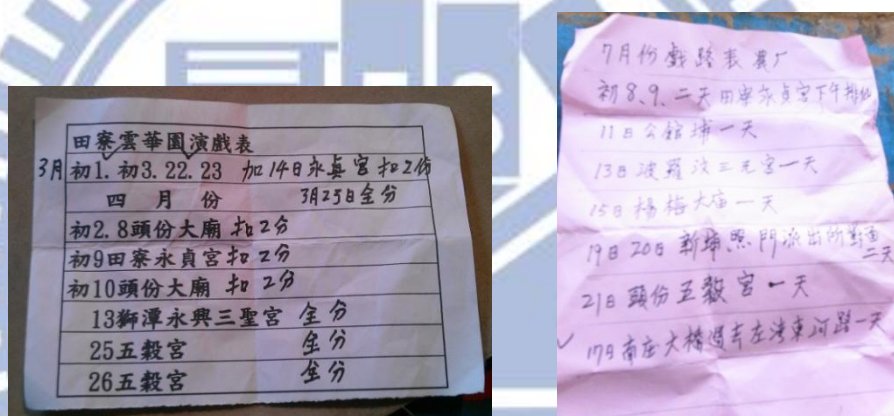 田寮雲華園演戲表
3月初1.初3.22.23 加14日永貞宮扣2份
四月份 3月25日全分
初2.8頭份大廟扣2分
初9田寮永貞宮扣2分
初10頭份大廟扣2分
13獅潭永興三聖宮 全分
25五穀宮 全分
26五穀宮 全分
7月份戲路表
初8、9、二天田寮永貞宮下午
11日公館埔一天
13日波羅汶三元宮一天
15日楊梅大庙一天
19日20日新埔照門派出所對面
二天
21日頭份五穀宮一天
17日南庄大橋過去左湾東河路一天